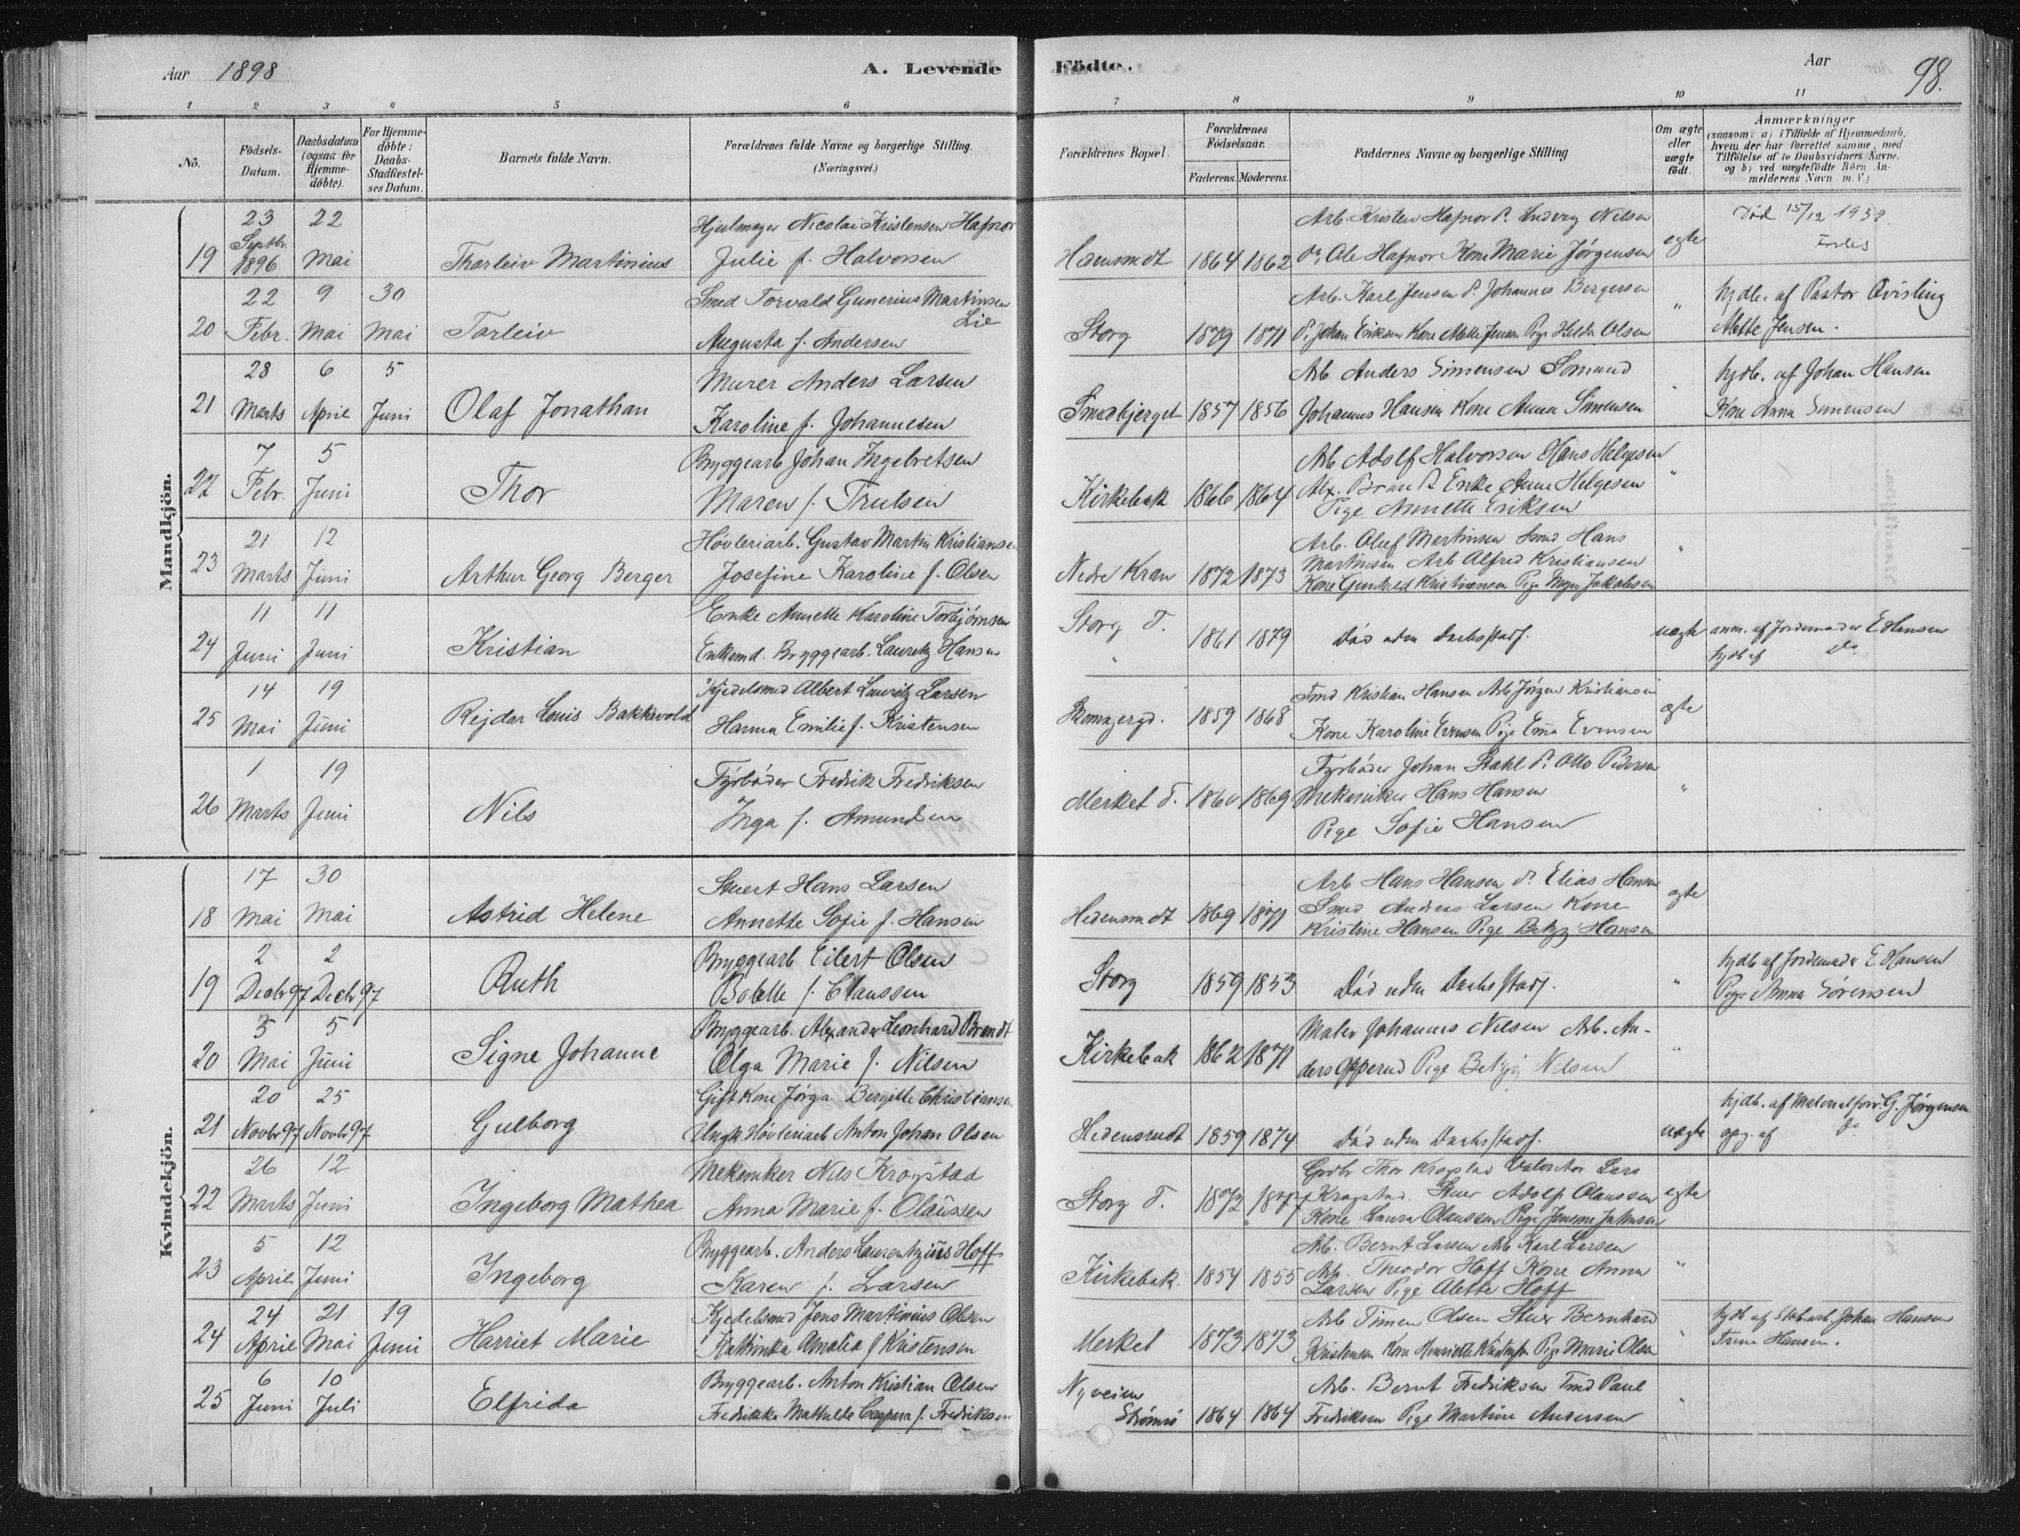 Aar 1898
A. Levende Födte.
Aar
98.
1 2 3 4 5 6 7 8 9 10 11
No.
Födsels-Datum.
Daabsdatum (ogsaa for Hjemme-döbte).
For Hjemme-döbte: Daabs-Stadfæstel-ses Datum.
Barnets fulde Navn.
Forældrenes fulde Navne og borgerlige Stilling. (Næringsvei.)
Forældrenes Bopæl.
Forældrenes Födselsaar.
Faderens. Moderens.
Faddernes Navne og borgerlige Stilling
Om ægte eller uægte födt.
Anmærkninger (saasom: a) i Tilfælde af Hjemmedaab, hvem der har forrettet samme, med Tilföielse af to Daabsvidners Navne. og b) ved uægtefödte Börn An-melderens Navn m. V.)
Mandkjön.
23 22 Hjulmager Nicolai Kristensen Hafnor Arb. Kristen Hafnor Do Ludvig Nilsen Död 15/12 1939
19 Septbr. 1896 Mai Thorleiv Martinius Julie f. Halvorsen 1864 1862 Do Ole Hafnor Kone Marie Jørgensen egte
22 9 30 Smed Torvald Gunerius Martinsen Lie Arb. Karl Jensen Do Johannes Bergersen hjdb. af Pastor Qvisling
20 Febr. Mai Mai Torleiv Augusta f. Andersen Storg 1879 1871 Do Johan Eriksen Kone Mette Jensen Pige Hilda Olsen " Mette Jensen.
28 6 5 Murer Anders Larsen Arb Anders Simensen Smed hjdb. af Johan Hansen
21 Marts April Juni Olaf Jonathan Karoline f. Johannesen Smedbjerget 1857 1856 Johannes Hansen Kone Anna Simensen " Kone Anna Simensen
7 5 Bryggearb Johan Ingebretsen Arb Adolf Halvorsen Hans Helgesen
22 Febr. Juni Thor Maren f. Trulsen Kirkebak 1866 1864 Alex. Brandt Enke Anne Helgesen "
Pige Annette Eriksen
21 12 Høvleriarb. Gustav Martin Kristiansen Arb. Oluf Martinsen Smd Hans
23 Marts Juni Arthur Georg Berger Josefine Karoline f. Olsen Nedre Kran 1872 1873 Martinsen Arb Alfred Kristiansen "
Kone Gunhild Kristiansen Pige Jakobsen
11 11 Enke Annette Karoline Torbjørnsen Storg T.
24 Juni Juni Kristian Enkemd. Bryggearb. Lauritz Hansen " 1861 1879 Död uden Daabsstadf. uægte anm. af Jordemoder E Hansen
hjdb af do
14 19 Kjedelsmed Albert Lauritz Larsen Smd Kristian Hansen Arb Jörgen Kristiansen
25 Mai Juni Rejdar Louis Bakkevold Hanna Emilie f. Kristensen 1859 1868 Kone Karoline Evensen Pige Ema Evensen ægte
1 19 Fyrbøder Fredrik Fredriksen Fyrbøder Johan Stahl Do Otto Pedersen
26 Marts Juni Nils Inga f. Amundsen Merket T. 1860 1869 Mekaniker Hans Hansen "
Pige Sofie Hansen
Kvindekjön.
17 30 Stuert Hans Larsen Arb Hans Hansen Do Elias Hansen
18 Mai Mai Astrid Helene Annette Sofie f. Hansen Hedensrudt 1869 1871 Smed Andreas Larsen Kone ægte
Kristine Hansen Pige Betzy Hansen
2 2 Bryggearb Eilert Olsen hjdb af Jordemoder E Hansen
19 Decbr 97 Decbr 97 Ruth Bolette f. Claussen Storg 1859 1853 Död uden Daabsstadf. " Pige Anna Sörensen
3 5 Bryggearb. Alexander Leonhard Brandt Maler Johannes Nilsen Arb. An-
20 Mai Juni Signe Johanne Olga Marie f. Nilsen Kirkebak 1862 1871 ders Opperud Pige Betzy Nilsen "
20 25 Gift Kone Jörga Bergitte Christiansen hjdb. af Materialforv. G. Jørgensen
21 Novbr 97 Novbr 97 Gulborg Ungk Høvleriarb Anton Johan Olsen Hedensrudt 1859 1874 Död uden Daabsstadf. uægte opg. af do
26 12 Mekaniker Nils Krogstad Grdbr Thor Krogstad Valvator Lars
22 Marts Juni Ingeborg Mathea Anna Marie f. Olaüssen Storg T. 1872 1877 Krogstad. Stuer Adolf Olaussen egte
Kone Laura Olaussen Pige Jensine Jakobsen
5 12 Bryggearb. Anders Laurentzius Hoff Arb. Bernt Larsen Arb Karl Larsen
23 April Juni Ingeborg Karen f. Larsen Kirkebak. 1854 1855 Arb. Theodor Hoff Kone Anna "
Larsen Pige Alette Hoff
24 21 19 Kjedelsmed Jens Martinius Olsen Arb Simen Olsen Stuer Bernhard hjdb af Johan Hansen
24 April Mai Juni Harriet Marie Kathinka Amalia f Kristensen Merket 1873 1873 Kristensen Kone Henriette Pige Marie Olsen " Trine Hansen.
6 10 Bryggearb. Anton Kristian Olsen Nyveien Arb. Bernt Fredriksen Smd Paul
25 Juni Juli Elfrida Fredrikke Mathilde Caspara f. Fredriksen Strömsö 1864 1864 Fredriksen Pige Martine Andersen "